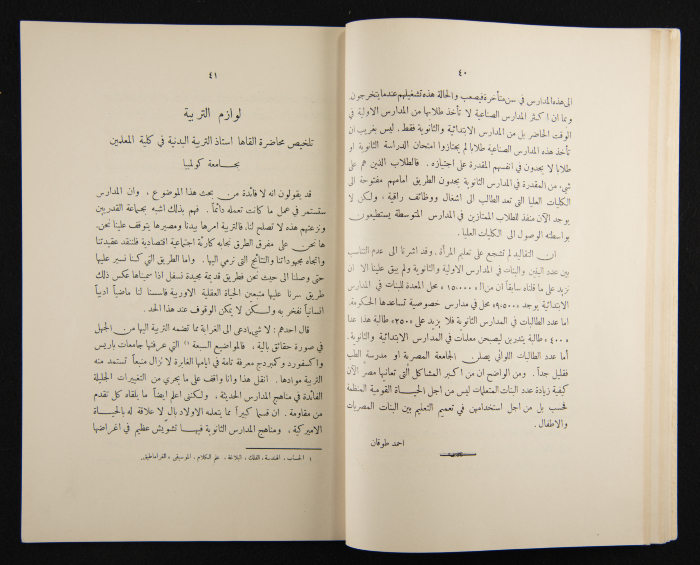 ٤٠
الى هذه المدارس في سن متأخرة فيصعب والحالة هذه تشغيلهم عندما يتخرجون
وبما ان اكثر المدارس الصناعية لا تأخذ طلابها من المدارس الاولية في
الوقت الحاضر بل من المدارس الابتدائية والثانوية فقط. ليس بغريب ان
تأخذ هذه المدارس الصناعية طلابا لم يجتازوا امتحان الدراسة الثانوية او
طلابا لا يجدون في انفسهم المقدرة على اجتيازه. فالطلاب الذين هم على
شيء من المقدرة في المدارس الثانوية يجدون الطريق امامهم مفتوحة الى
الكليات العليا التي تعد الطالب الى اشغال ووظائف راقية، ولكن لا
يوجد الآن منفذ للطلاب الممتازين في المدارس المتوسطة يستطيعون
بواسطته الوصول الى الكليات العليا.
ان التقاليد لم تشجع على تعليم المرأة. وقد اشرنا الى عدم التناسب
بين عدد البنين والبنات في المدارس الاولية والثانوية ولم يبق علينا الا ان
نزيد على ما قلناه سابقاً ان من الـ ١٥٠٠٠٠ محل المعدة للبنات في المدارس
الابتدائية يوجد ٩٥٠٠٠ محل في مدارس خصوصية تساعدها الحكومة.
اما عدد الطالبات في المدارس الثانوية فلا يزيد على ٢٥٠٠ طالبة هذا عدا
٤٠٠٠ طالبة يتدربن ليصبحن معلمات في المدارس الابتدائية والثانوية.
أما عدد الطالبات اللواتي يصلن الجامعة المصرية او مدرسة الطب
فقليل جداً. ومن الواضح ان من اكبر المشاكل التي تعانيها مصر الآن
كيفية زيادة عدد البنات المتعلمات ليس من اجل الحياة القومية المنظمة
فحسب بل من اجل استخدامهن في تعميم التعليم بين البنات المصريات
والاطفال.
احمد طوقان
٤١
لوازم التربية
تلخيص محاضرة القاها استاذ التربية البدنية في كلية المعلمين
بجامعة كولمبيا
قد يقولون انه لا فائدة من بحث هذا الموضوع، وان المدارس
ستستمر في عمل ما كانت تعمله دائماً. فهم بذلك اشبه بجماعة القدريين
ونزعتهم هذه لا تصلح لنا. فالتربية امرها بيدنا ومصيرها يتوقف علينا نحن.
ها نحن على مفرق الطرق نجابه كارثة اجتماعية اقتصادية فلننقد عقيدتنا
واتجاه مجهوداتنا والنتائج التي نرمي اليها. واما الطريق التي كنا نسير عليها
حتى وصلنا الى حيث نحن فطريق قديمة مجيدة نسفل اذا سميناها عكس ذلك
طريق سرنا عليها متبعين الحياة العقلية الاوربية فاسسنا لنا ماضياً ادبياً
انسانياً نفخر به ولكن لا يمكن الوقوف عند هذا الحد.
قال احدهم: لا شيء ادعى الى الغرابة مما تضمه التربية اليها من الجهل
في صورة حقائق بالية، فالمواضيع السبعة (١) التي عرفتها جامعات باريس
واكسفورد وكمبردج معرفة تامة في ايامها الغابرة لا تزال منبعاً تستمد منه
التربية موادها. انقل هذا وانا واقف على ما يجري من التغييرات الجليلة
الفائدة في مناهج المدارس الحديثة، ولكنني اعلم ايضاً ما يلقاه كل تقدم
من مقاومة. ان قسماً كبيراً مما يتعلمه الاولاد بال لا علاقة له بالحياة
الاميركية، ومناهج المدارس الثانوية فيها تشويش عظيم في اغراضها
١ الحساب، الهندسة، الفلك، البلاغة، علم الكلام، الموسيقى، الغراماطيق.